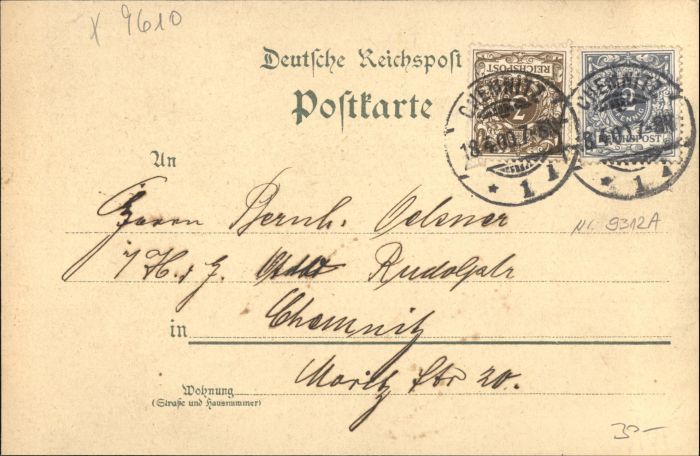 X 9610
Deutsche Reichspost
Postkarte
REICHSPOST
REICHSPOST
CHEMNITZ
18.4.00.7-8N.
* 1
CHEMNITZ
18.4.00.7-8N.
* 1
An
Herrn Bernh. Oelsner
Rudolph
Nr. 9312A
in Chemnitz
Moritz Str 20.
Wohnung
(Straße und Hausnummer)
30-